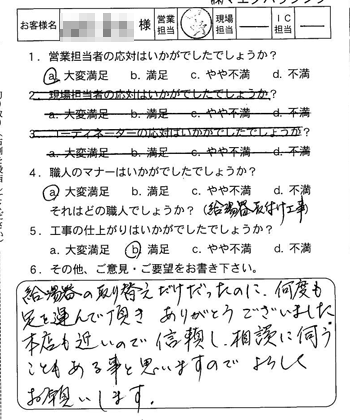 お客様名 様 営業担当 現場担当 IC担当
1．営業担当者の応対はいかがでしたでしょうか？
a. 大変満足 b. 満足 c. やや不満 d. 不満
2．現場担当者の応対はいかがでしたでしょうか？
a. 大変満足 b. 満足 c. やや不満 d. 不満
3．コーディネーターの応対はいかがでしたでしょうか？
a. 大変満足 b. 満足 c. やや不満 d. 不満
4．職人のマナーはいかがでしたでしょうか？
a. 大変満足 b. 満足 c. やや不満 d. 不満
それはどの職人でしょうか？（給湯器取付け工事）
5．工事の仕上がりはいかがでしたでしょうか？
a. 大変満足 b. 満足 c. やや不満 d. 不満
6．その他、ご意見・ご要望をお書き下さい。
給湯器の取り替えだけだったのに、何度も
足を運んで頂き ありがとうございました
本店も近いので信頼し、相談に伺う
こともある事と思いますのでよろしく
お願いします。